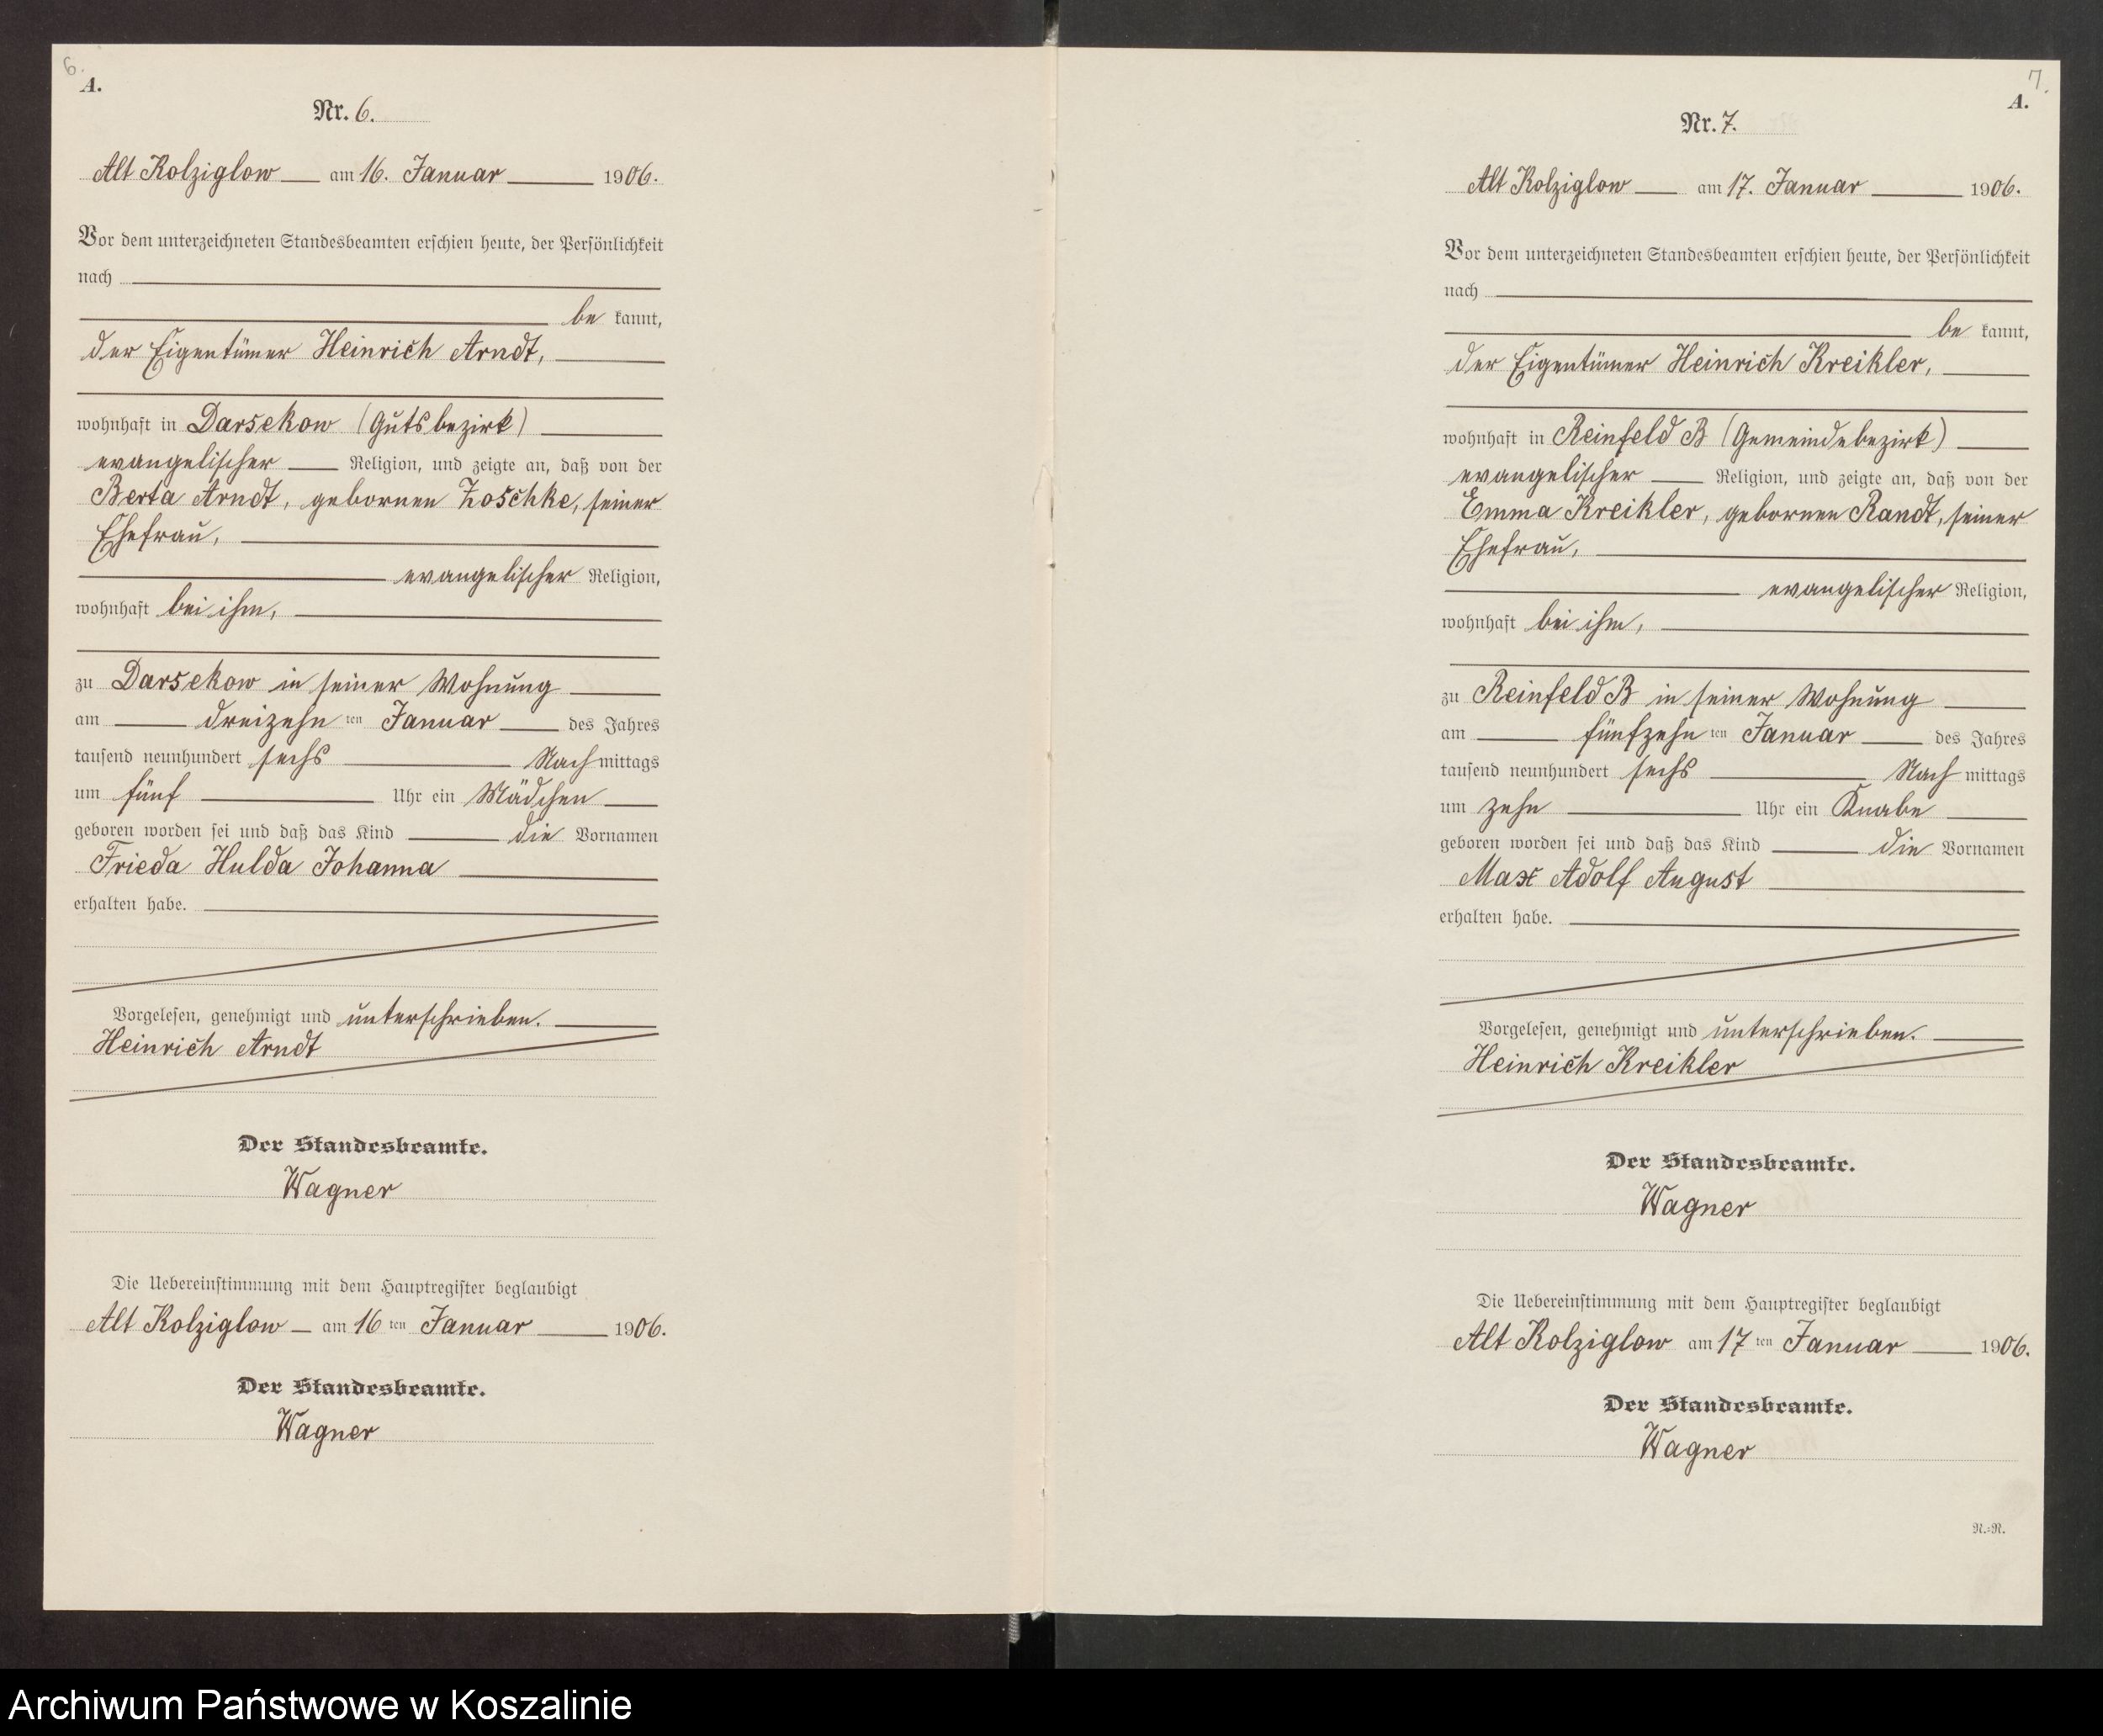 6.
A.
Nr. 6.
Alt Kolziglow am 16. Januar 1906.
Vor dem unterzeichneten Standesbeamten erschien heute, der Persönlichkeit
nach
be kannt,
der Eigentümer Heinrich Arndt,
wohnhaft in Darsekow (Gutsbezirk)
evangelischer Religion, und zeigte an, daß von der
Berta Arndt, gebornen Zoschke, seiner
Ehefrau,
evangelischer Religion,
wohnhaft bei ihm,
zu Darsekow in seiner Wohnung
am dreizehn ten Januar des Jahres
tausend neunhundert sechs Nach mittags
um fünf Uhr ein Mädchen
geboren worden sei und daß das Kind die Vornamen
Frieda Hulda Johanna
erhalten habe.
Vorgelesen, genehmigt und unterschrieben.
Heinrich Arndt
Der Standesbeamte.
Wagner
Die Uebereinstimmung mit dem Hauptregister beglaubigt
Alt Kolziglow am 16 ten Januar 1906.
Der Standesbeamte.
Wagner
7.
A.
Nr. 7.
Alt Kolziglow am 17. Januar 1906.
Vor dem unterzeichneten Standesbeamten erschien heute, der Persönlichkeit
nach
be kannt,
der Eigentümer Heinrich Kreikler,
wohnhaft in Reinfeld B (Gemeindebezirk)
evangelischer Religion, und zeigte an, daß von der
Emma Kreikler, gebornen Randt, seiner
Ehefrau,
evangelischer Religion,
wohnhaft bei ihm,
zu Reinfeld B in seiner Wohnung
am fünfzehn ten Januar des Jahres
tausend neunhundert sechs Nach mittags
um zehn Uhr ein Knabe
geboren worden sei und daß das Kind die Vornamen
Max Adolf August
erhalten habe.
Vorgelesen, genehmigt und unterschrieben.
Heinrich Kreikler
Der Standesbeamte.
Wagner
Die Uebereinstimmung mit dem Hauptregister beglaubigt
Alt Kolziglow am 17 ten Januar 1906.
Der Standesbeamte.
Wagner
N.=N.
Archiwum Państwowe w Koszalinie